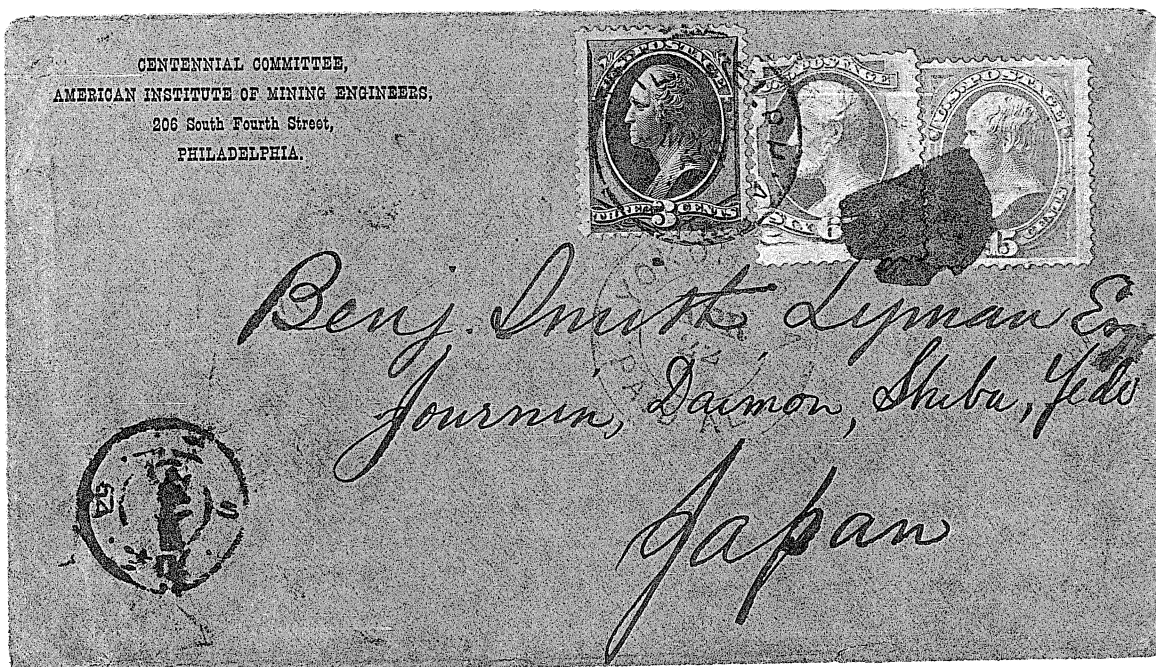 CENTENNIAL COMMITTEE,
AMERICAN INSTITUTE OF MINING ENGINEERS,
206 South Fourth Street,
PHILADELPHIA.
U.S. POSTAGE
THREE 3 CENTS
POSTAGE
6
U.S. POSTAGE
15 CENTS
Benj. Smith Lyman Esq
Journin, Daimon, Shiba, Yedo
Japan